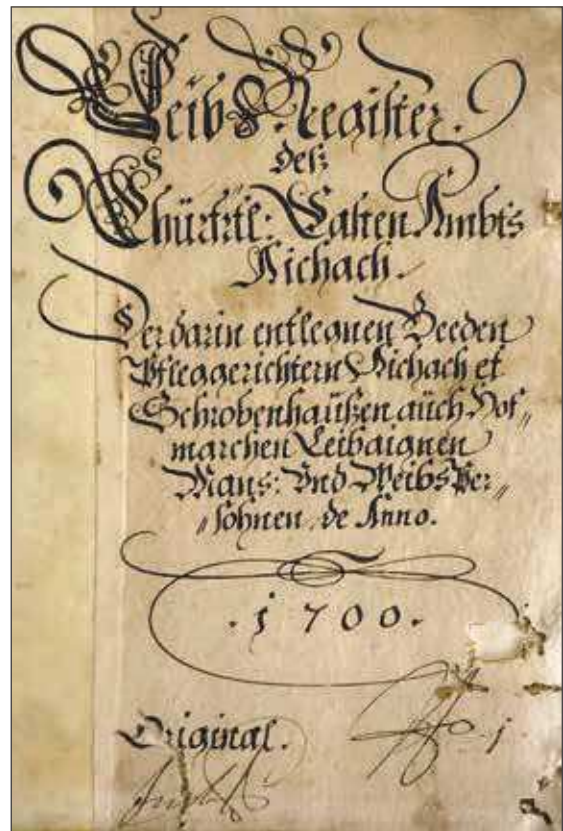 Leibs Register.
deß
Churfrtl: Casten Ambts
Aichach.
Der darin entlegnen Beeden
Pfleggerichtern Aichach et
Schrobenhaußen auch Hof„
marchen Leibaignen
Mans: Vnd Weibs Per„
„sohnen de Anno.
. 1 7 0 0 .
Original.
1